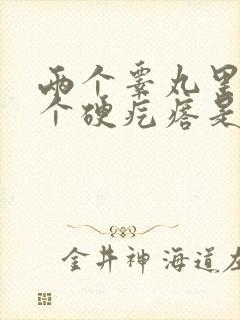 两个睾丸里
个硬疙瘩是
金井神 海道左